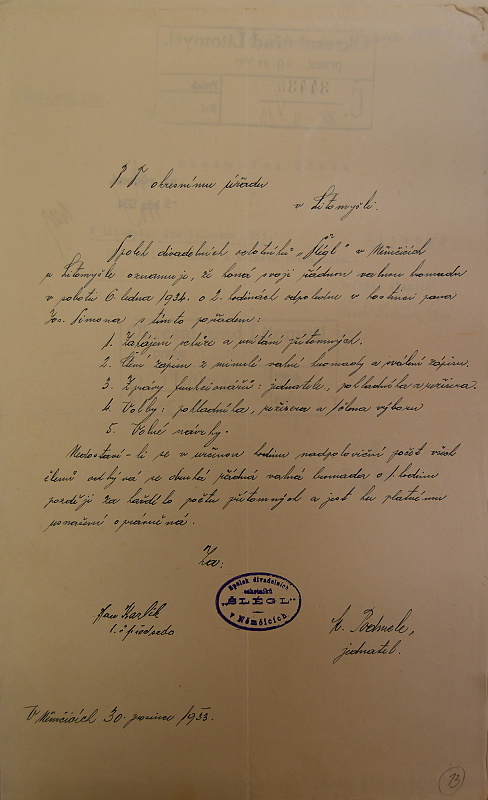 P. T. okresnímu úřadu
v Litomyšli.
Spolek divadelních ochotníků „Šlégl" v Němčicích
u Litomyšle oznamuje, že koná svoji řádnou valnou hromadu
v sobotu 6. ledna 1934 o 2. hodinách odpoledne v hostinci pana
Jos. Simona s tímto pořadem:
1. Zahájení schůze a uvítání přítomných.
2. Čtení zápisu z minulé valné hromady a schválení zápisu.
3. Zprávy funkcionářů: jednatele, pokladníka a režisera.
4. Volby: pokladníka, režisera a člena výboru
5. Volné návrhy.
Nedostaví-li se v určenou hodinu nadpoloviční počet všech
členů odbývá se druhá řádná valná hromada o 1. hodinu
později za každého počtu přítomných a jest ku platnému
usnášení oprávněná.
Za:
Spolek divadelních
ochotníků
„ŠLÉGL"
v Němčicích
Jan Karlík
předseda
jednatel.
V Němčicích 30. prosince 1933.
13